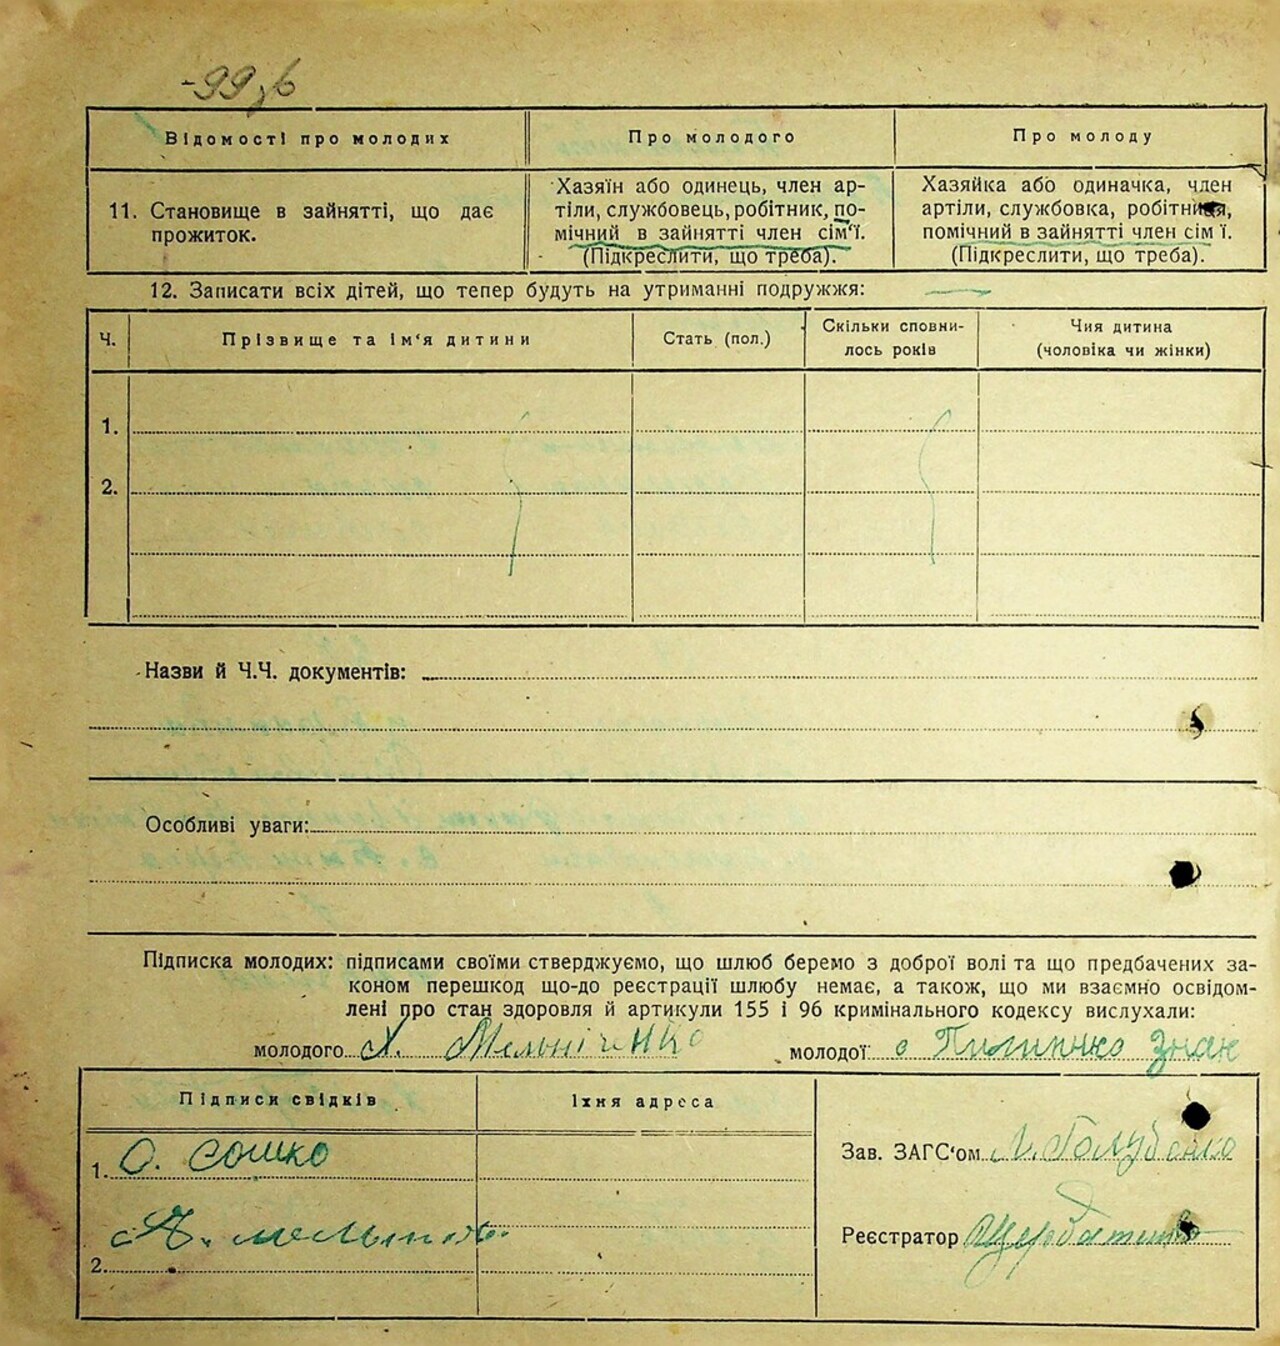 -99зв
Відомості про молодих
Про молодого
Про молоду
11. Становище в зайнятті, що дає
прожиток.
Хазяїн або одинець, член ар-
тіли, службовець, робітник, по-
мічний в зайнятті член сім'ї.
(Підкреслити, що треба).
Хазяйка або одиначка, член
артіли, службовка, робітниця,
помічний в зайнятті член сім ї.
(Підкреслити, що треба).
12. Записати всіх дітей, що тепер будуть на утриманні подружжя: —
Ч.
Прізвище та ім'я дитини
Стать (пол.)
Скільки сповни-
лось років
Чия дитина
(чоловіка чи жінки)
1.
2.
Назви й Ч.Ч. документів:
Особливі уваги:
Підписка молодих: підписами своїми стверджуємо, що шлюб беремо з доброї волі та що предбачених за-
коном перешкод що-до реєстрації шлюбу немає, а також, що ми взаємно освідом-
лені про стан здоровля й артикули 155 і 96 кримінального кодексу вислухали:
молодого Х. Мельніченко молодої
Підписи свідків
Їхня адреса
1. О. Сошко
2.
Зав. ЗАГС'ом Голубенко
Реєстратор